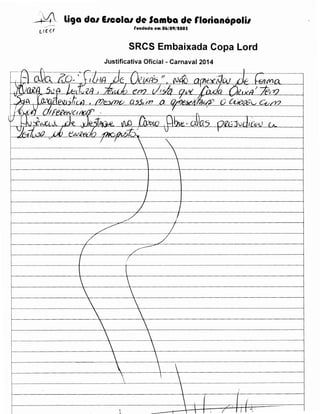 Liga das Escolas de Samba de Florianópolis
Fundada em
SRCS Embaixada Copa Lord
Justificativa Oficial - Carnaval 2014
A ala 20 "FILHA de ORIXÁS", NÃO apresentou de Forma
sua Leitura, tendo em vista que Cada ORIXÁ TEM
sua Característica, mesmo assim a apresentaram o corpo com
Ausência de destaque no Carro Abre-alas prejudicou a
leitura do enredo proposto.